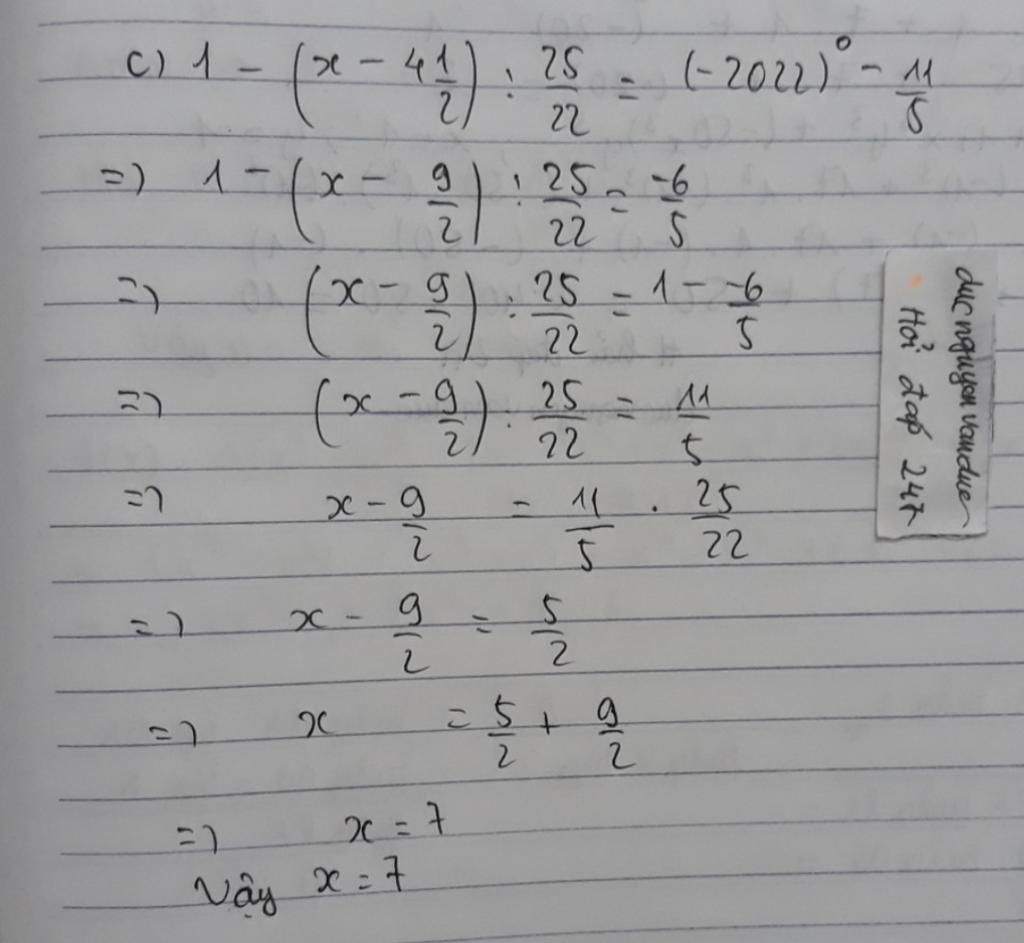 c) 1 - (x - 4 1/2) : 25/22 = (-2022)⁰ - 11/5
=> 1 - (x - 9/2) : 25/22 = -6/5
=> (x - 9/2) : 25/22 = 1 - -6/5
=> (x - 9/2) : 25/22 = 11/5
=> x - 9/2 = 11/5 . 25/22
=> x - 9/2 = 5/2
=> x = 5/2 + 9/2
=> x = 7
Vậy x = 7
ducnguyenvanduc
Hỏi đáp 247